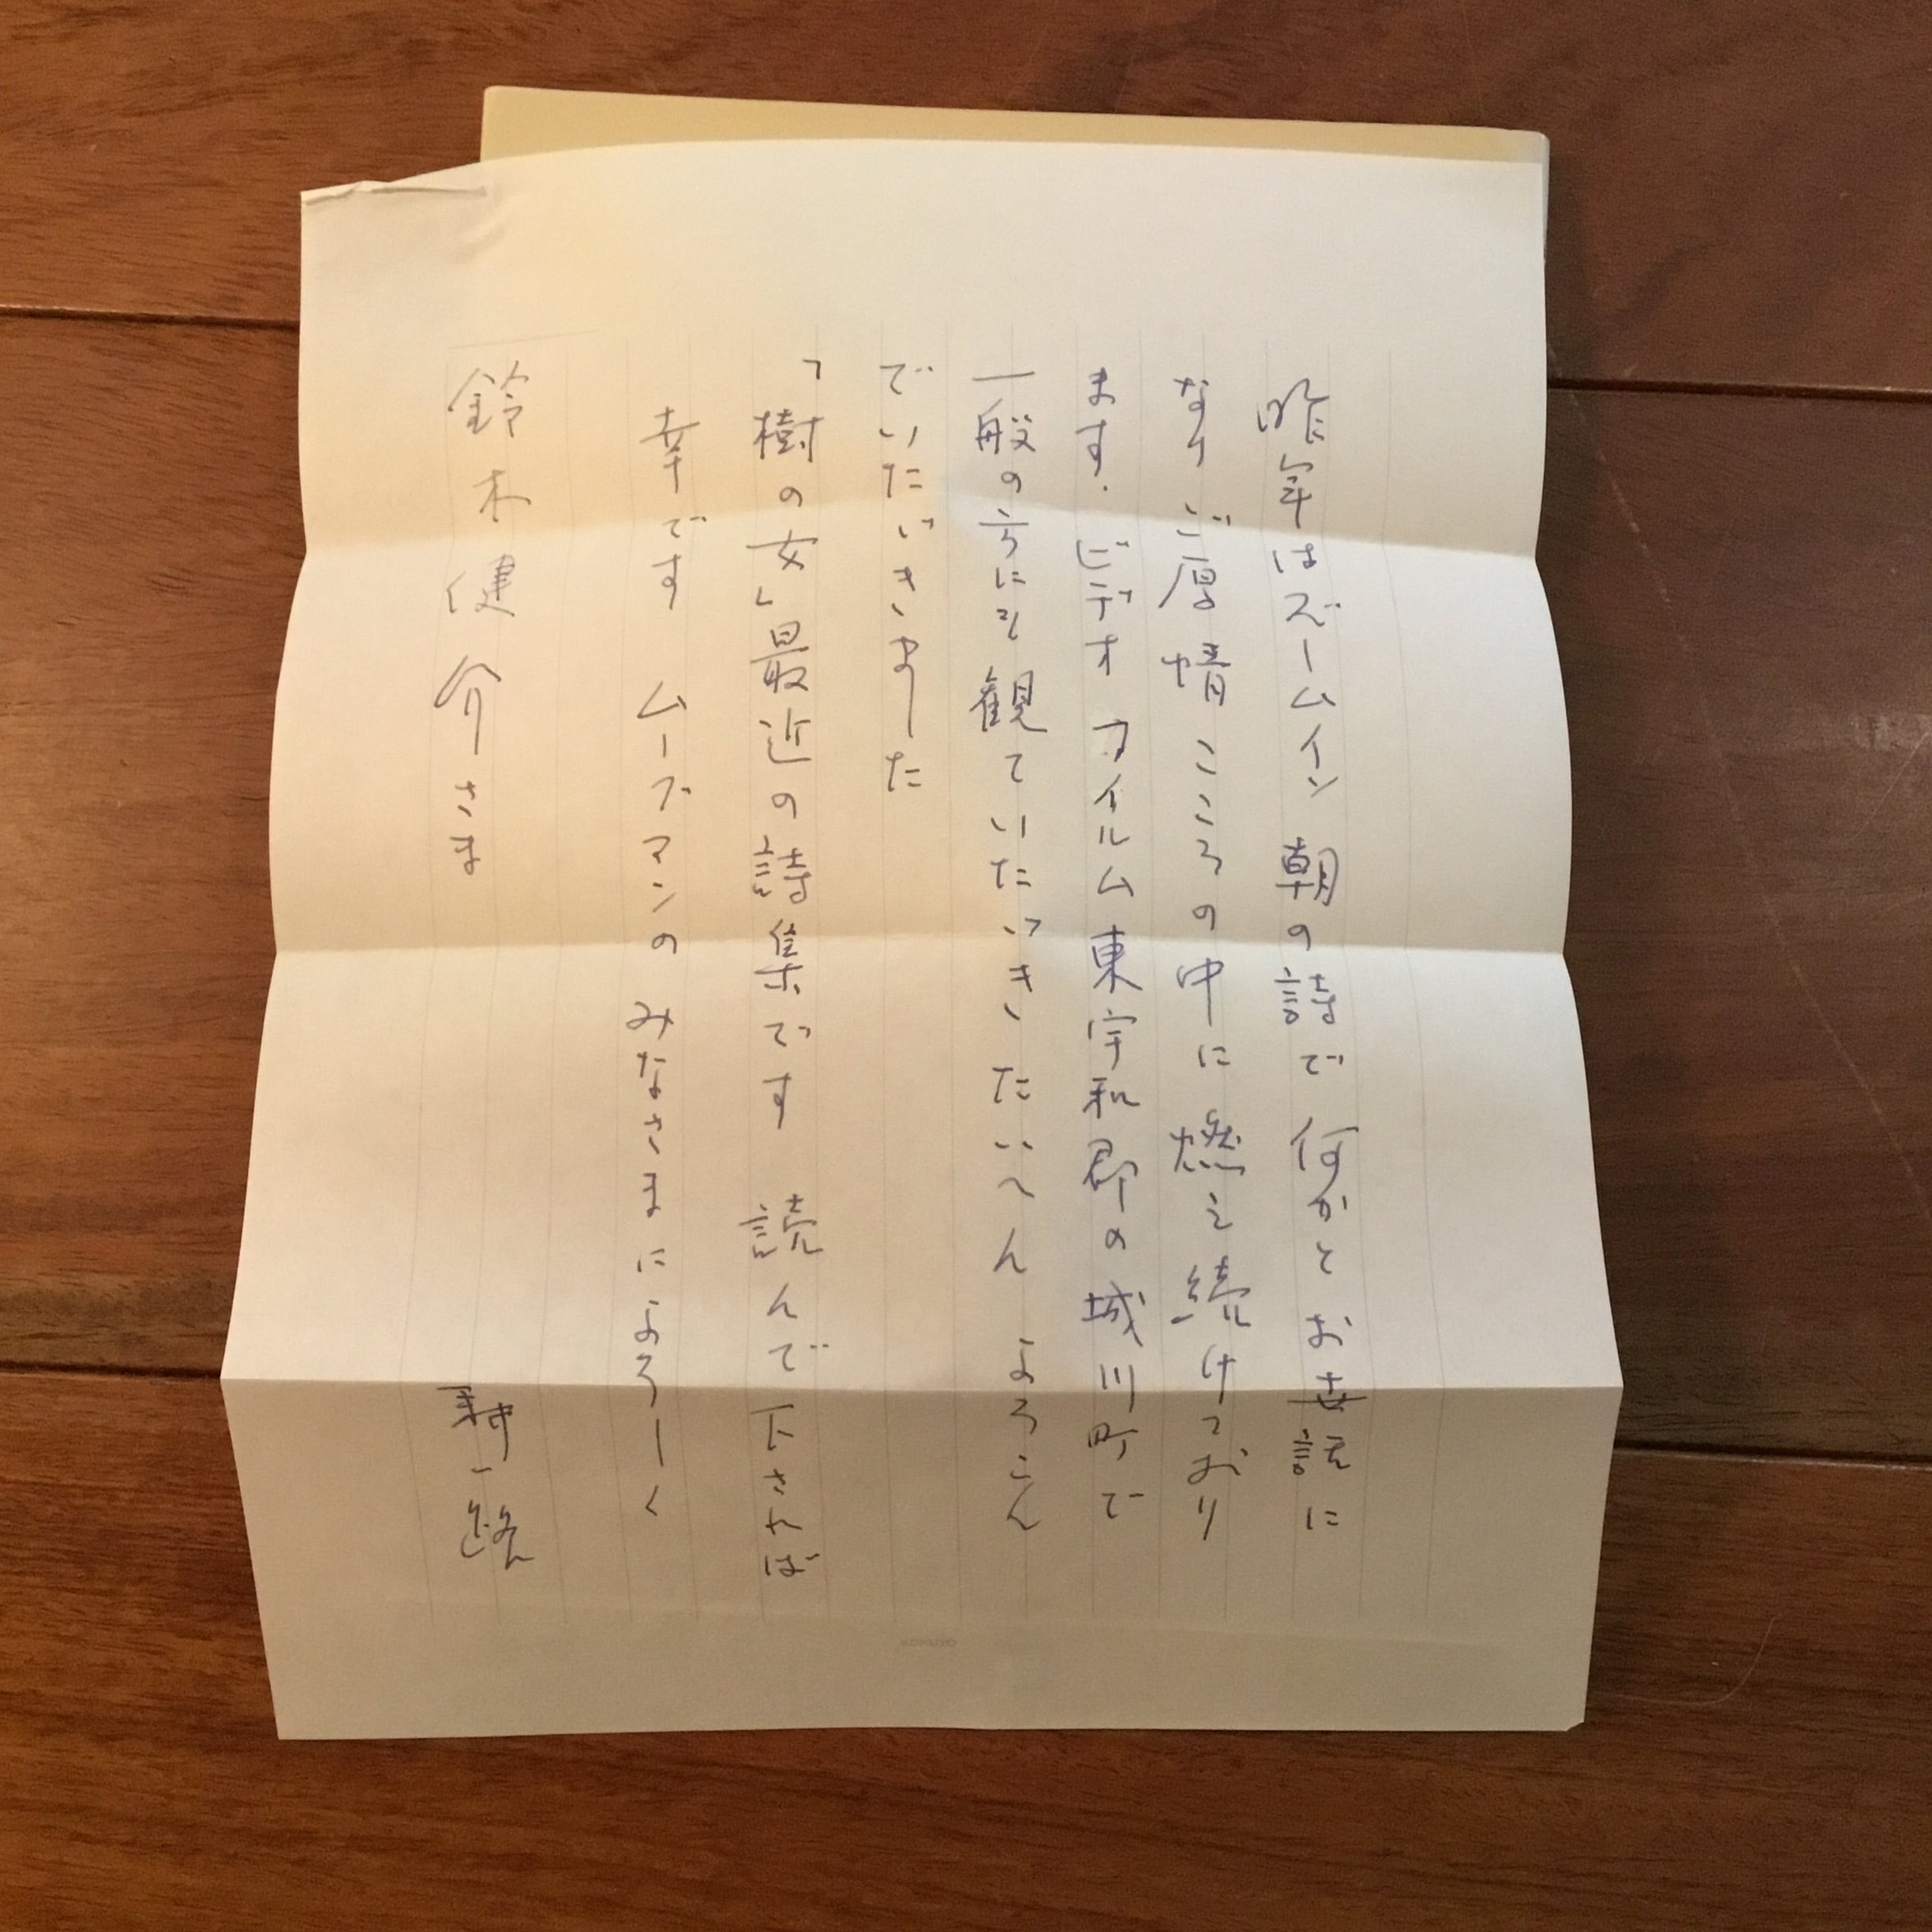 昨年はズームイン 朝の詩で 何かとお世話に
なり ご厚情 こころの中に 燃え続けており
ます. ビデオ フイルム 東宇和郡の城川町で
一般の方にも 観ていただき たいへん よろこん
でいただきました
「樹の女」最近の詩集です 読んで下されば
幸です ムーブマンの みなさまによろしく
鈴木健介さま
一路